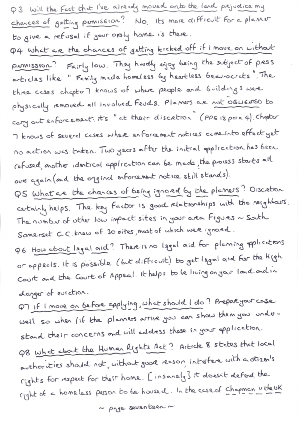 Q3 Will the fact that I've already moved onto the land prejudice my
chances of getting permission? No, its more difficult for a planner
to give a refusal if your only home is there.
Q4 What are the chances of getting kicked off if I move on without
permission? Fairly low. They hardly enjoy being the subject of press
articles like "Family made homeless by heartless beaurocrats" The
three cases chapter 7 knows of where people and buildings were
physically removed all involved feuds. Planners are not OBLIGED to
carry out enforcement: it's "at their discretion" (PPG 18 para 5). Chapter
7 knows of several cases where enforcement notices came into effect yet
no action was taken. Two years after the initial application has been
refused, another identical application can be made, the process starts all
over again (and the original enforcement notice still stands).
Q5 What are the chances of being ignored by the planners? Discretion
certainly helps. The key factor is good relationships with the neighbours.
The number of other low impact sites in your area figures - South
Somerset C.C. knew of 30 sites, most of which were ignored.
Q6 How about legal aid? There is no legal aid for planning applications
or appeals. It is possible (but difficult) to get legal aid for the High
Court and the Court of Appeal. It helps to be living on your land and in
danger of eviction.
Q7 If I move on before applying, what should I do? Prepare your case
well so when/if the planners arrive you can show them you under-
stand their concerns and will address these in your application.
Q8 What about the Human Rights Act? Article 8 states that local
authorities should not, without good reason, interfere with a citizen's
rights for respect for their home. [insanely] it doesnt defend the
right of a homeless person to be housed. In the case of Chapman v the UK
~ page seventeen ~